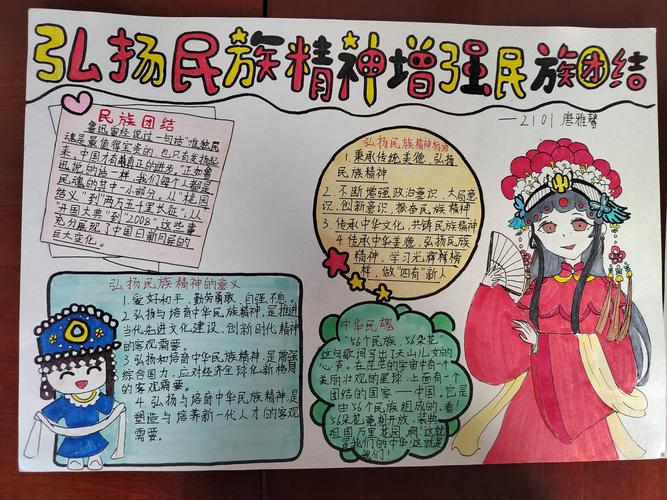 弘扬民族精神增强民族团结
——2101 唐雅馨
民族团结
鲁迅曾经说过一句话"惟独民
魂是最值得宝贵的,也只有发扬起
来,中国才有真正的进步。"正如鲁
迅说的这一样,我们每个人都是
民魂的其中一小部分,从"桃园
结义"到"两万五千里长征",从
"开国大典"到"2008",这些事
充分展现了中国日新月异的
巨大变化。
弘扬民族精神
1. 秉承传统美德,弘扬
民族精神
2. 不断增强政治意识、大局意
识、创新意识,振奋民族精神
3. 传承中华文化,共铸民族精神
4 传承中华美德,弘扬民族
精神,学习光辉榜
样,做"四有"新人
弘扬民族精神的意义
1. 爱好和平、勤劳勇敢、自强不息。
2 弘扬与培育中华民族精神,是推进
当代先进文化建设,创新时代精神
的客观需要。
3 弘扬和培育中华民族精神,是增强
综合国力,应对经济全球化新格局
的客观需要。
4. 弘扬与培育中华民族精神,是
塑造与培养新一代人才的客观
需要。
中华民魂
"56个民族,56朵花"
这句歌词写出了天山儿女的
心声。在茫茫的宇宙中有一个
美丽壮观的星球,上面有一个
团结的国家——中国,它是
由56个民族组成的,看!
56朵花竞相开放,装典
祖国万里花园,啊!这就
是我们的中华这就是
我们!